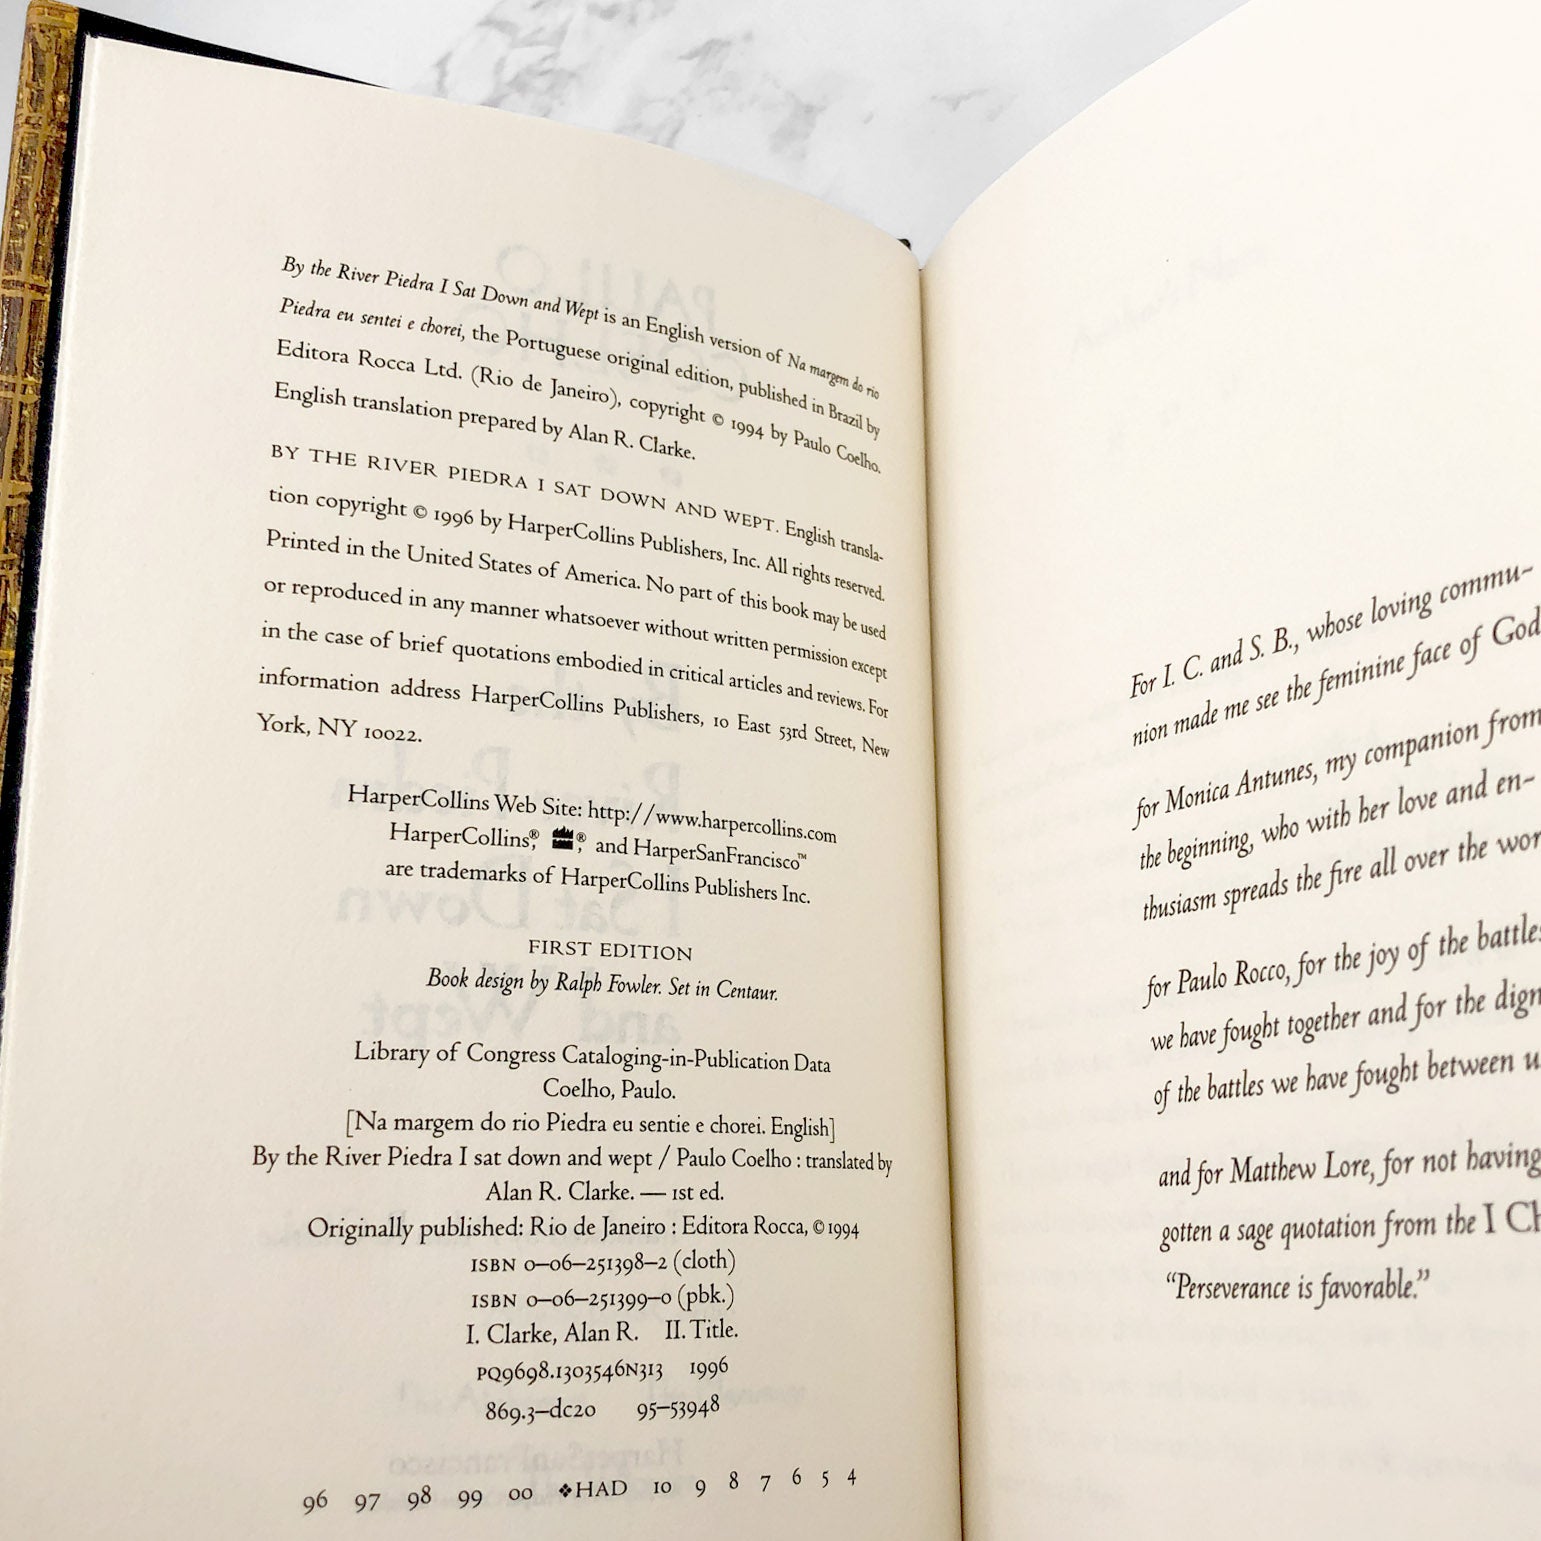 By the River Piedra I Sat Down and Wept is an English version of Na margem do rio
Piedra eu sentei e chorei, the Portuguese original edition, published in Brazil by
Editora Rocca Ltd. (Rio de Janeiro), copyright © 1994 by Paulo Coelho.
English translation prepared by Alan R. Clarke.
BY THE RIVER PIEDRA I SAT DOWN AND WEPT. English transla-
tion copyright © 1996 by HarperCollins Publishers, Inc. All rights reserved.
Printed in the United States of America. No part of this book may be used
or reproduced in any manner whatsoever without written permission except
in the case of brief quotations embodied in critical articles and reviews. For
information address HarperCollins Publishers, 10 East 53rd Street, New
York, NY 10022.
HarperCollins Web Site: http://www.harpercollins.com
HarperCollins®, ®, and HarperSanFrancisco™
are trademarks of HarperCollins Publishers Inc.
FIRST EDITION
Book design by Ralph Fowler. Set in Centaur.
Library of Congress Cataloging-in-Publication Data
Coelho, Paulo.
[Na margem do rio Piedra eu sentie e chorei. English]
By the River Piedra I sat down and wept / Paulo Coelho : translated by
Alan R. Clarke. — 1st ed.
Originally published: Rio de Janeiro : Editora Rocca, ©1994
ISBN 0–06–251398–2 (cloth)
ISBN 0–06–251399–0 (pbk.)
I. Clarke, Alan R. II. Title.
PQ9698.1303546N313 1996
869.3–dc20 95–53948
96 97 98 99 00 ❖HAD 10 9 8 7 6 5 4
For I. C. and S. B., whose loving commu-
nion made me see the feminine face of God
for Monica Antunes, my companion from
the beginning, who with her love and en-
thusiasm spreads the fire all over the wor
for Paulo Rocco, for the joy of the battles
we have fought together and for the dign
of the battles we have fought between u
and for Matthew Lore, for not having
gotten a sage quotation from the I Ch
“Perseverance is favorable.”